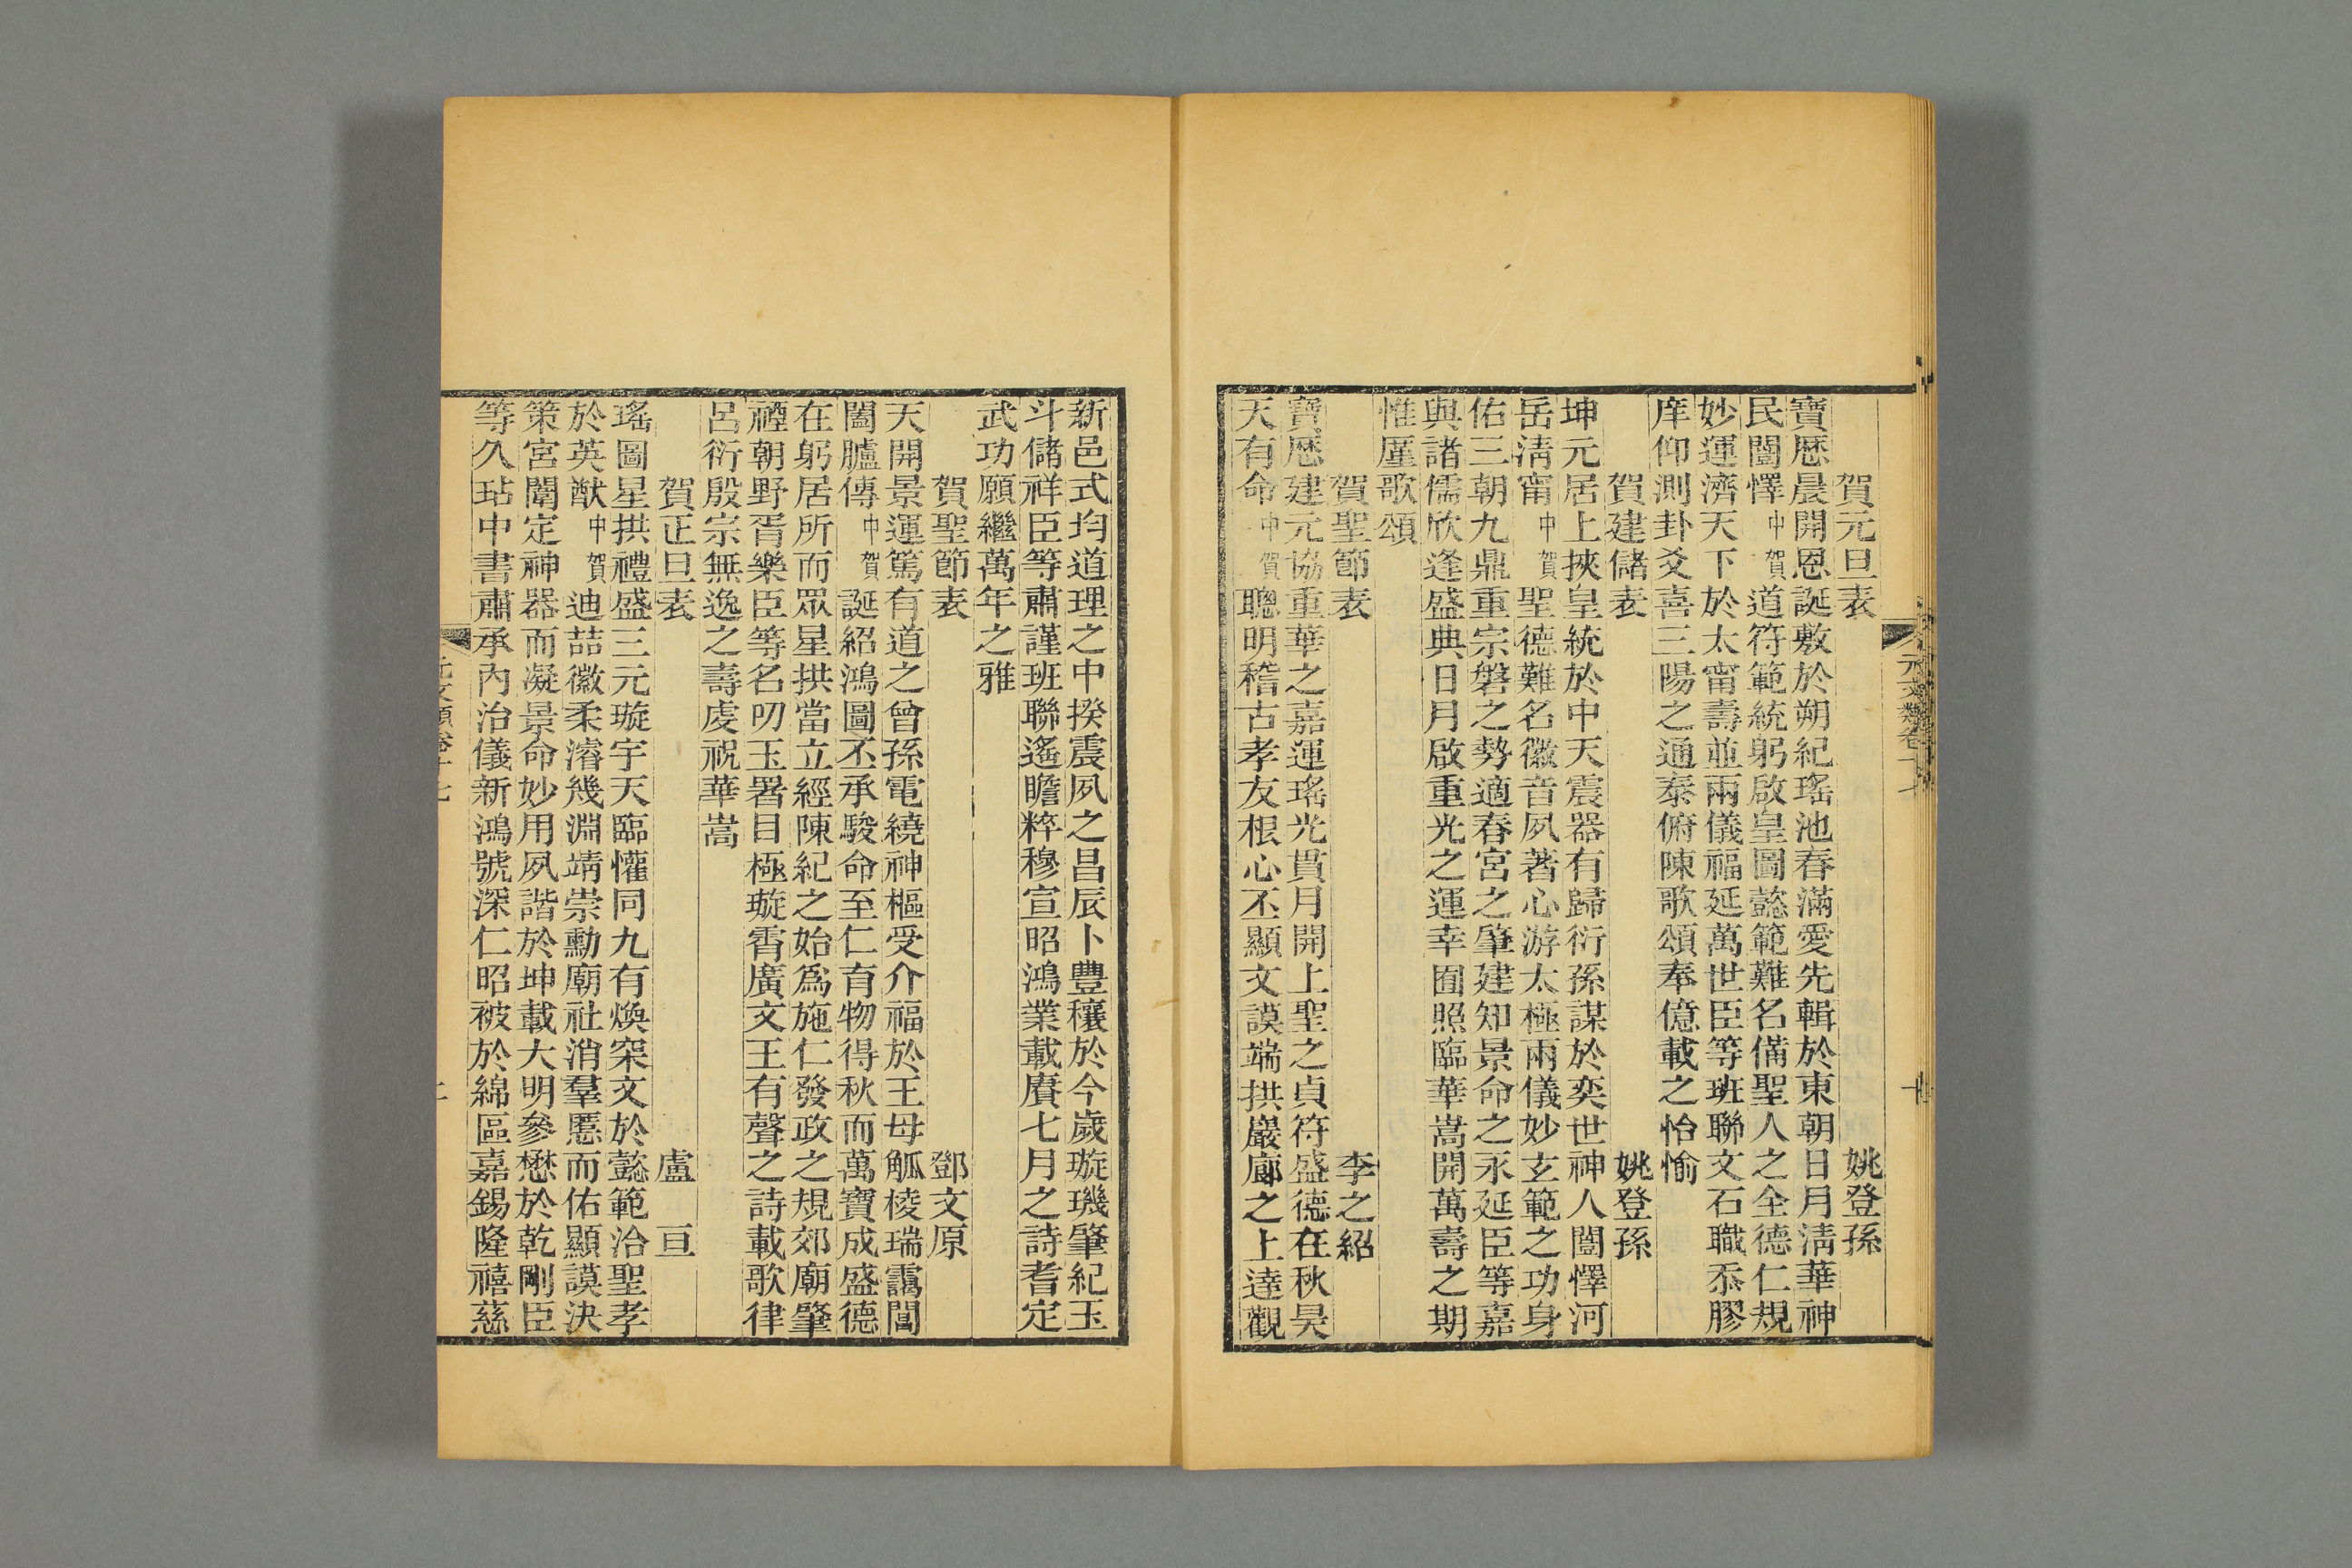 賀元旦表 姚登孫
寶厯晨開恩誕敷於朔紀瑤池春滿愛先輯於東朝日月淸華神
民闓懌中賀道符範統躬啟皇圖懿範難名備聖人之全德仁規
妙運濟天下於太甯壽並兩儀福延萬世臣等班聯文石職忝膠
庠仰測卦爻喜三陽之通泰俯陳歌頌奉億載之怡愉
賀建儲表 姚登孫
坤元居上挾皇統於中天震器有歸衍孫謀於奕世神人闓懌河
岳淸甯中賀聖德難名徽音夙著心游太極兩儀妙玄範之功身
佑三朝九鼎重宗磐之勢適春宮之肇建知景命之永延臣等嘉
與諸儒欣逢盛典日月啟重光之運幸囿照臨華嵩開萬壽之期
惟厪歌頌
賀聖節表 李之紹
寶厯建元協重華之嘉運瑤光貫月開上聖之貞符盛德在秋昊
天有命中賀聰明稽古孝友根心丕顯文謨端拱巖廊之上達觀
元文類卷十七
新邑式均道理之中揆震夙之昌辰卜豐穰於今歲璇璣肇紀玉
斗儲祥臣等肅謹班聯遙瞻粹穆宣昭鴻業載賡七月之詩耆定
武功願繼萬年之雅
賀聖節表 鄧文原
天開景運篤有道之曾孫電繞神樞受介福於王母觚棱瑞靄閶
闔臚傳中賀誕紹鴻圖丕承駿命至仁育物得秋而萬寶成盛德
在躬居所而眾星拱當立經陳紀之始爲施仁發政之規郊廟肇
禋朝野胥樂臣等名叨玉署目極璇霄廣文王有聲之詩載歌律
呂衍殷宗無逸之壽虔祝華嵩
賀正旦表 盧亘
瑤圖星拱禮盛三元璇宇天臨懽同九有煥寀文於懿範洽聖孝
於英猷中賀迪喆徽柔濬幾淵靖崇勳廟社消羣慝而佑顯謨決
策宮闈定神器而凝景命妙用夙諧於坤載大明參懋於乾剛臣
等久玷中書肅承內治儀新鴻號深仁昭被於綿區嘉錫隆禧慈
元文類卷十七